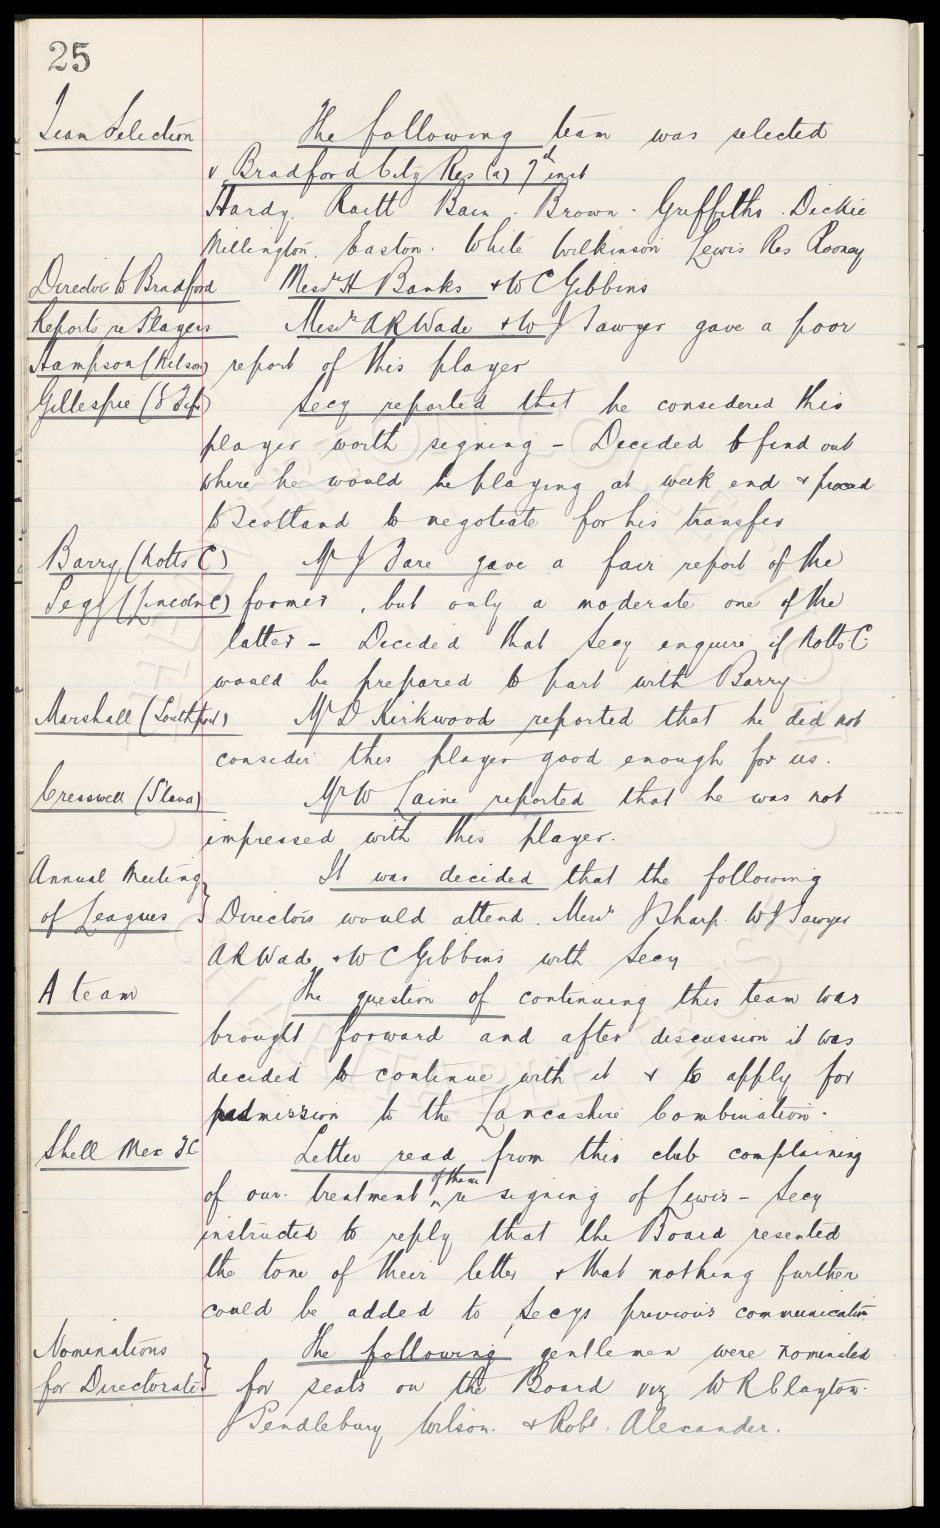 25
Team Selection The following team was selected
v Bradford City Res (a) 7th inst
Hardy. Raitt Bain. Brown. Griffiths. Dickie
Millington. Easton. White Wilkinson Lewis Res Rooney
Director to Bradford Messrs H Banks & W C Gibbins
Reports re Players Messrs A R Wade & W J Sawyer gave a poor
Hampson (Nelson) report of this player
Gillespie (E Fife) Secy reported that he considered this
player worth signing – Decided to find out
where he would be playing at week end & proceed
to Scotland to negotiate for his transfer
Barry (Notts C) Mr J Fare gave a fair report of the
Pegg (Lincoln C) former, but only a moderate one of the
latter – Decided that Secy enquire if Notts C
would be prepared to part with Barry.
Marshall (Southport) Mr D Kirkwood reported that he did not
consider this player good enough for us.
Cresswell (Slava) Mr W Laine reported that he was not
impressed with this player.
Annual Meeting It was decided that the following
of Leagues Directors would attend. Messrs J Sharp. W J Sawyer
A R Wade & W C Gibbins with Secy
A team The question of continuing this team was
brought forward and after discussion it was
decided to continue with it & to apply for
admission to the Lancashire Combination.
Shell Mex FC Letter read from this club complaining
of our treatment of them re signing of Lewis – Secy
instructed to reply that the Board resented
the tone of their letter & that nothing further
could be added to Secys previous communication
Nominations The following gentlemen were nominated
for Directorate for seats on the Board viz W R Clayton.
J Pendlebury Wilson. & Robt. Alexander.